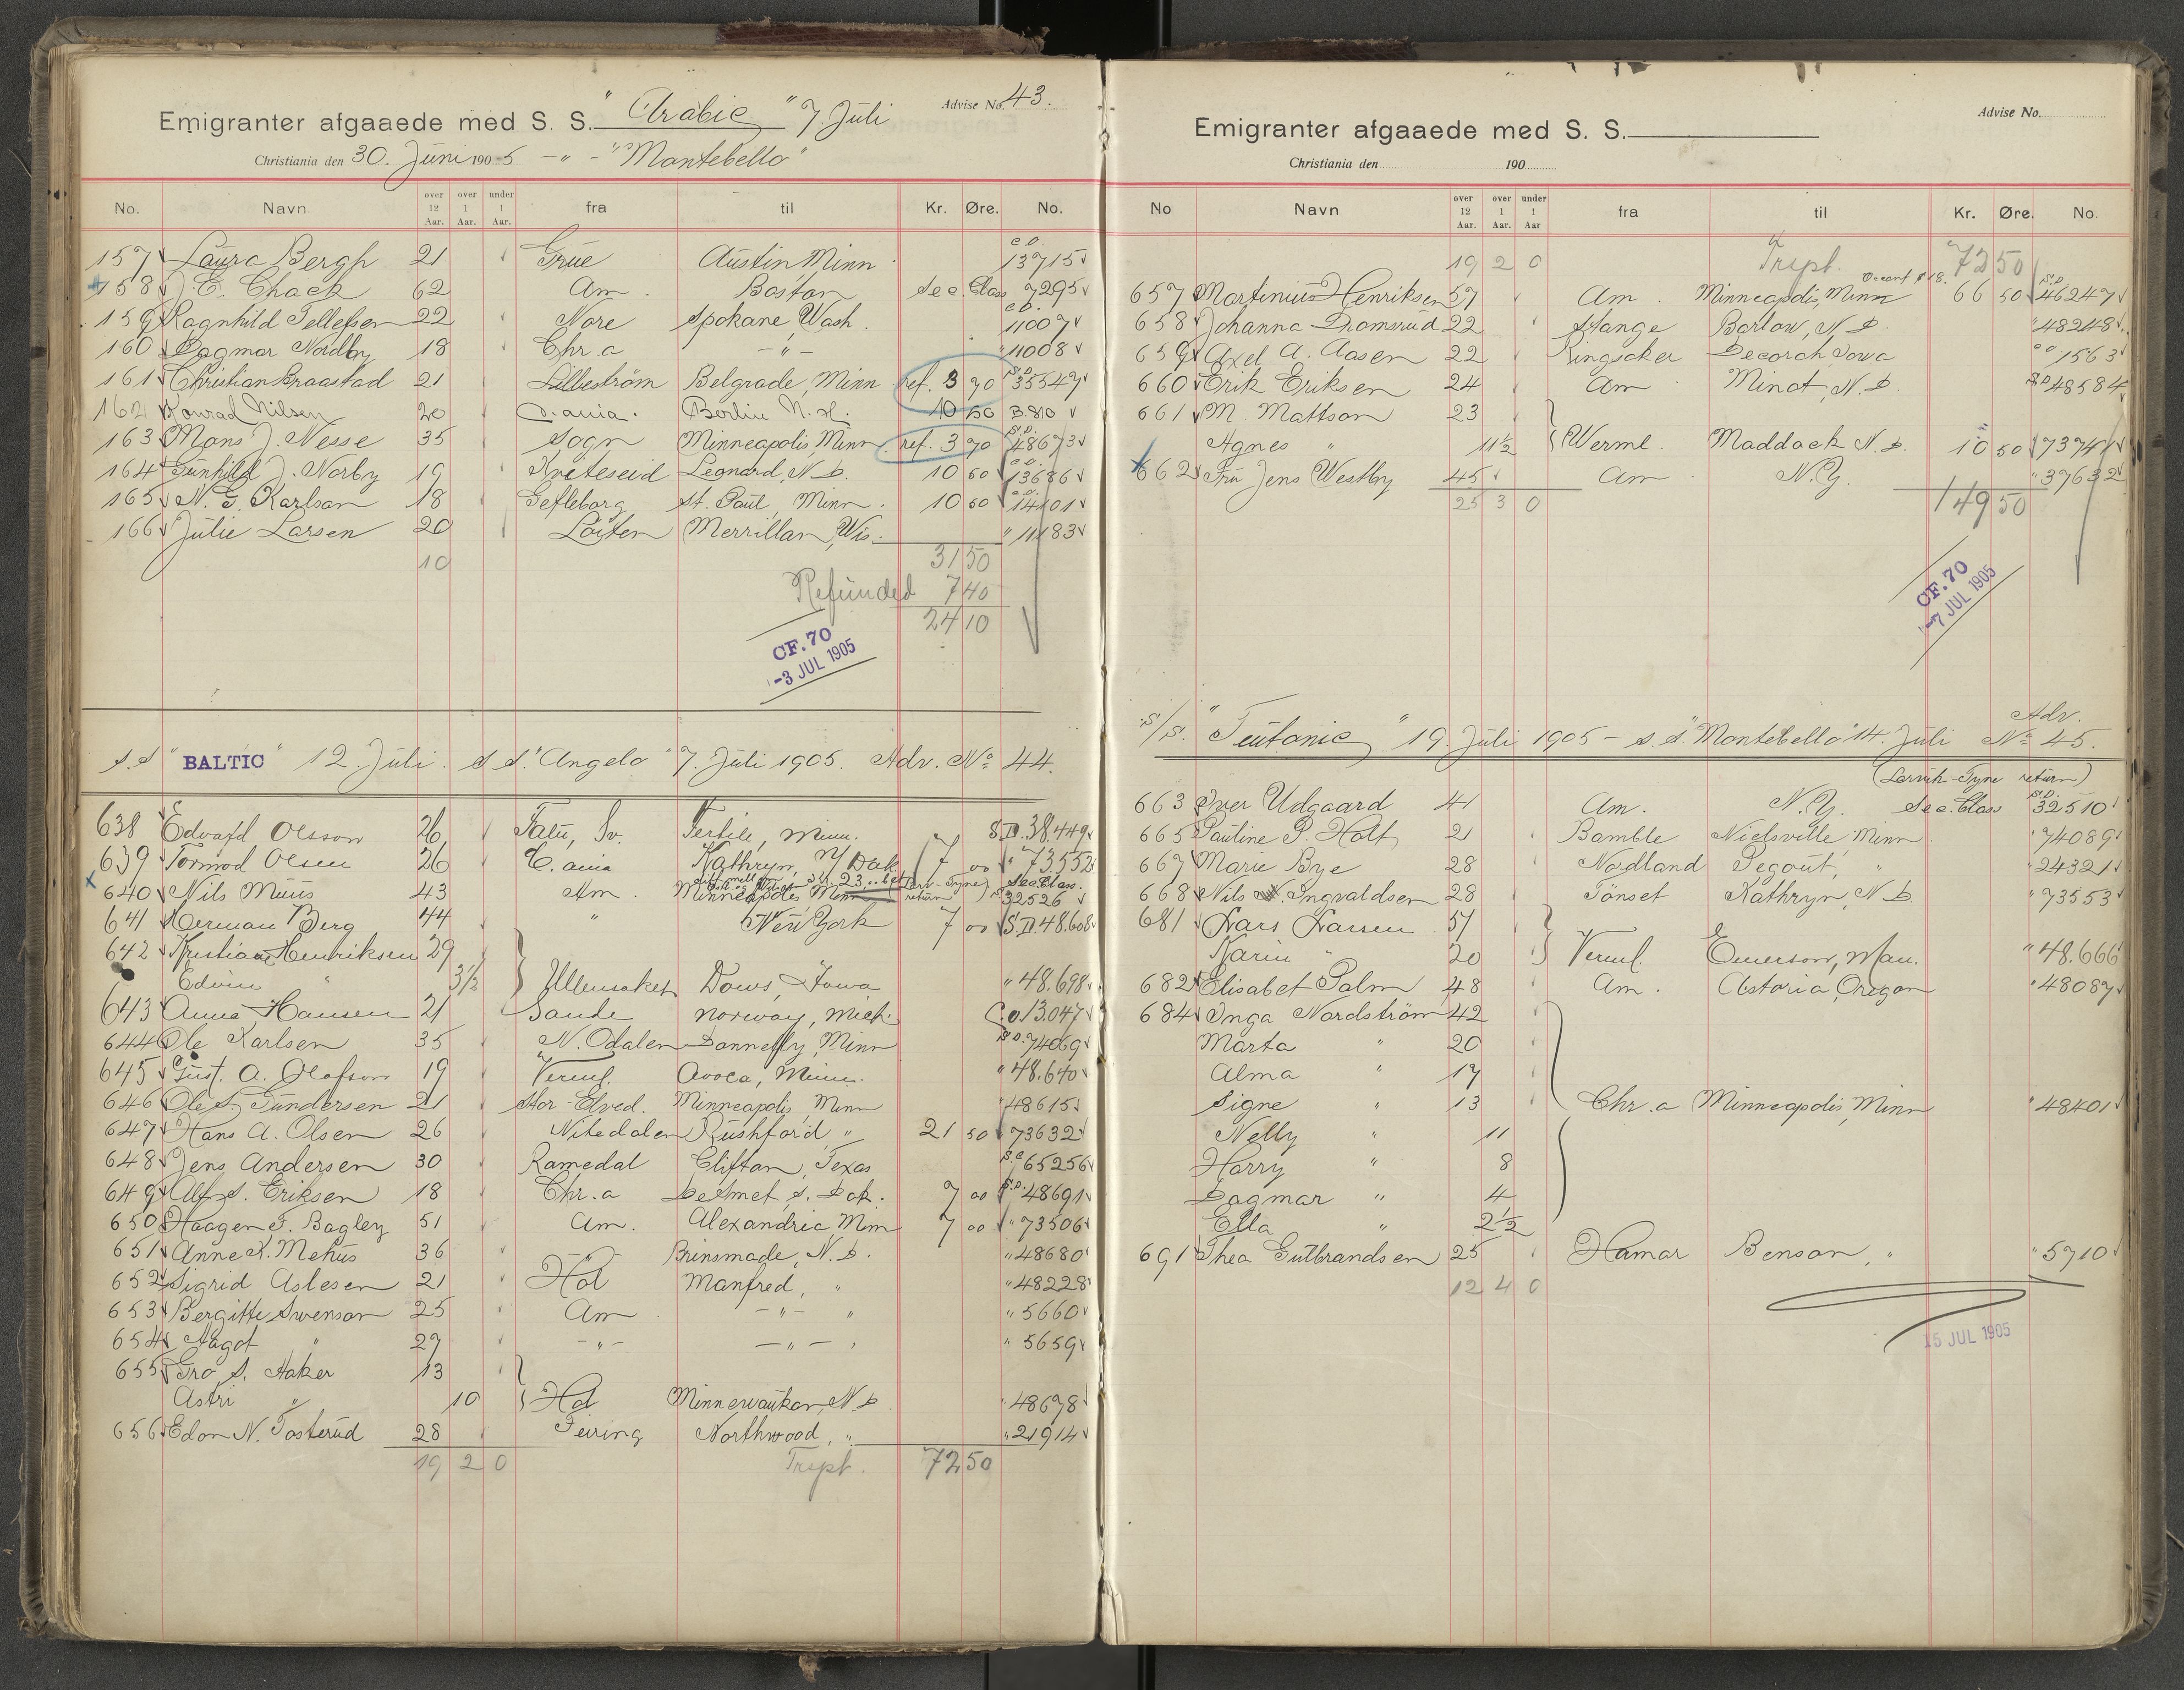 Emigranter afgaaede med S. S. "Arabic" 7. Juli Advise No. 43.
Christiania den 30. Juni 1905 -"- "Montebello"
No. Navn. over 12 Aar. over 1 Aar. under 1 Aar. fra til Kr. Øre. No.
157 Laura Bergh 21 Grue Austin Minn C.O. 13715
158 J. E. Chack 62 Am. Boston Sec. Class 7295
159 Ragnhild Tellefsen 22 Nore Spokane, Wash. C.O. 11007
160 Dagmar Nordby 18 Chr.a -"- " 11008
161 Christian Braastad 21 Lilleström Belgrade, Minn ref. 3 70 S.D. 35547
162 Konrad Nilsen 20 C.ania. Berlin N.H. 10 50 B.810
163 Mons J. Nesse 35 Sogn Minneapolis, Minn. ref. 3 70 S.D. 48673
164 Gunhild J. Norby 19 Kviteseid Leonard, N.D. 10 50 C.O. 13686
165 N. G. Karlson 18 Gefleborg St. Paul, Minn. 10 50 C.O. 14101
166 Julie Larsen 20 Löiten Merrillan, Wis. " 11183
10 31 50
Refunded 7 40
24 10
CF. 70
-3 JUL 1905
S.S "BALTIC" 12. Juli. S.S. "Angelo" 7. Juli 1905. Adv. No. 44.
638 Edvard Olsson 26 Fertile, Minn. S.D. 38.449
639 Tormod Olsen 26 C.ania Kathryn, N Dak 7 00 " 73552
640 Nils Muus 43 Am. Minneapolis Minn (Larv-Tyne return) Sec.Class. 32526
641 Herman Berg 44 " New York 7 00 S.D. 48.608
642 Kristian Henriksen 29
Edvin " 3½ Ullensaker Dows, Iowa " 48.698
643 Anna Hansen 21 Sande Norway, Mich. C.O 13.047
644 Ole Karlsen 35 N. Odalen Donnelly, Minn S.D. 74069
645 Gust. A. Olofson 19 Verml. Avoca, Minn. " 48.640
646 Ole S. Gundersen 21 Stor-Elved. Minneapolis, Minn " 48615
647 Hans A. Olsen 26 Nitedalen Rushford, " 21 50 " 73632
648 Jens Andersen 30 Romedal Clifton, Texas S.C 65256
649 Alf S. Eriksen 18 Chr.a DeSmet, S. Dak. 7 00 S.D. 48691
650 Haagen T. Bagley 51 Am. Alexandria Minn 7 00 " 73506
651 Anne K. Mehus 36 -"- Brinsmade, N.D. " 48680
652 Sigrid Aslesen 21 Hol Manfred, " " 48228
653 Bergitte Swenson 25 Am -"- " " 5660
654 Aagot " 27 -"- -"- " " 5659
655 Gro S. Haker 13
Astri " 10 Hol Minnewaukan, N.D " 48678
656 Edon N. Tosterud 28 Feiring Northwood, " " 21914
19 2 0 Trspt. 72 50
Emigranter afgaaede med S. S. Advise No.
Christiania den 190
No Navn over 12 Aar. over 1 Aar. under 1 Aar fra til Kr. Øre. No.
19 2 0 Trspt. 72 50
657 Martinius Henriksen 57 Am. Minneapolis, Minn 66 50 S.D. 46247
658 Johanna Dromsrud 22 Stange Barlow, N.D. " 48248
659 Axel A. Aasen 22 Ringsaker Decorah Iowa C.O 1563
660 Erik Eriksen 24 Am Minot, N.D. S.D 48584
661 M. Mattson 23
Agnes " 11½ Werml. Maddock N.D. 10 50 " 73741
662 Fru Jens Westby 45 Am N.Y. " 37632
25 3 0 149 50
CF. 70
-7 JUL 1905
S/S. "Teutonic" 19. Juli 1905 - S.S. "Montebello" 14. Juli Adv. No. 45.
(Larvik-Tyne return)
663 Iver Udgaard 41 Am. N.Y. Sec. Class S.D. 32510
665 Pauline P. Holt 21 Bamble Nielsville, Minn " 74089
667 Marie Bye 28 Nordland Pegout, " " 24321
668 Nils N. Ingvaldsen 28 Tönset Kathryn, N.D. " 73553
681 Lars Larsen 51
Karin " 20 Verml. Emerson, Man. " 48.666
682 Elisabet Palm 48 Am. Astoria, Oregon " 48087
684 Inga Nordström 42
Marta " 20
Alma " 17
Signe " 13 Chr.a Minneapolis, Minn " 48401
Nelly " 11
Harry " 8
Dagmar " 4
Ella " 2½
691 Thea Gulbrandsen 25 Hamar Benson, " " 5710
12 4 0
15 JUL 1905